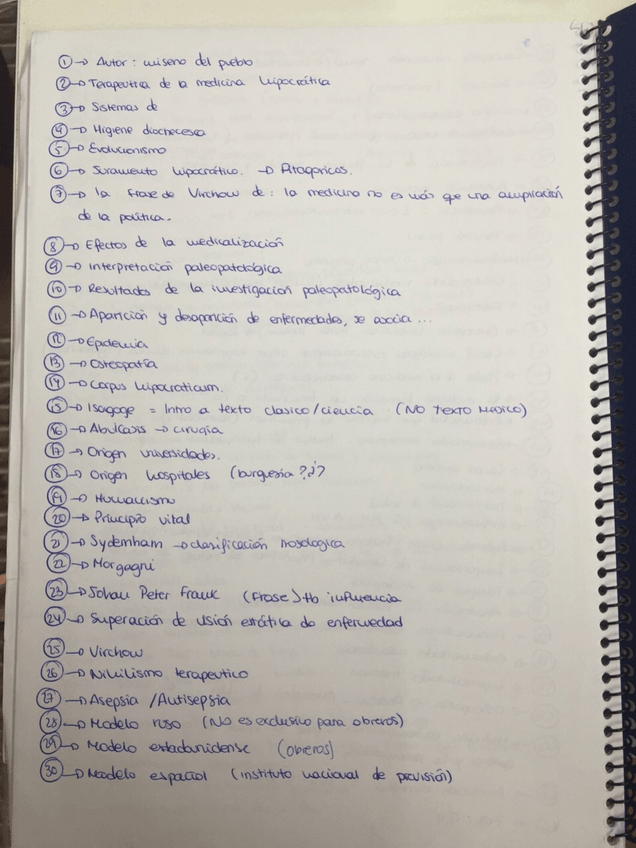 ① → Autor: miseno del pueblo
② → Terapeutica de la medicina hipocrática
③ → Sistemas de
④ → Higiene
⑤ → Evolucionismo
⑥ → Juramento hipocrático. → Pitagoricos.
⑦ → la frase de Virchow de: la medicina no es más que una ampliación
de la política.
⑧ → Efectos de la medicalización
⑨ → Interpretación paleopatológica
⑩ → Resultados de la investigacion paleopatológica
⑪ → Aparicion y desaparición de enfermedades, se asocia ...
⑫ → Epidemia
⑬ → Osteopatía
⑭ → Corpus hipocraticum.
⑮ → Isagoge = Intro a texto clasico/ciencia (NO TEXTO MEDICO)
⑯ → Abulcasis → cirugía
⑰ → Origen universidades.
⑱ → Origen hospitales (burguesia ?¿?
⑲ → Humanismo
⑳ → Principio vital
㉑ → Sydemham → clasificación nosologica
㉒ → Morgagni
㉓ → Johan Peter Frank (Frase) Hb influencia
㉔ → Superación de visión estática de enfermedad
㉕ → Virchow
㉖ → Nihilismo terapeutico
㉗ → Asepsia / Antisepsia
㉘ → Modelo ruso (No es exclusivo para obreros)
㉙ → Modelo estadounidense (obreros)
㉚ → Modelo español (instituto nacional de previsión)